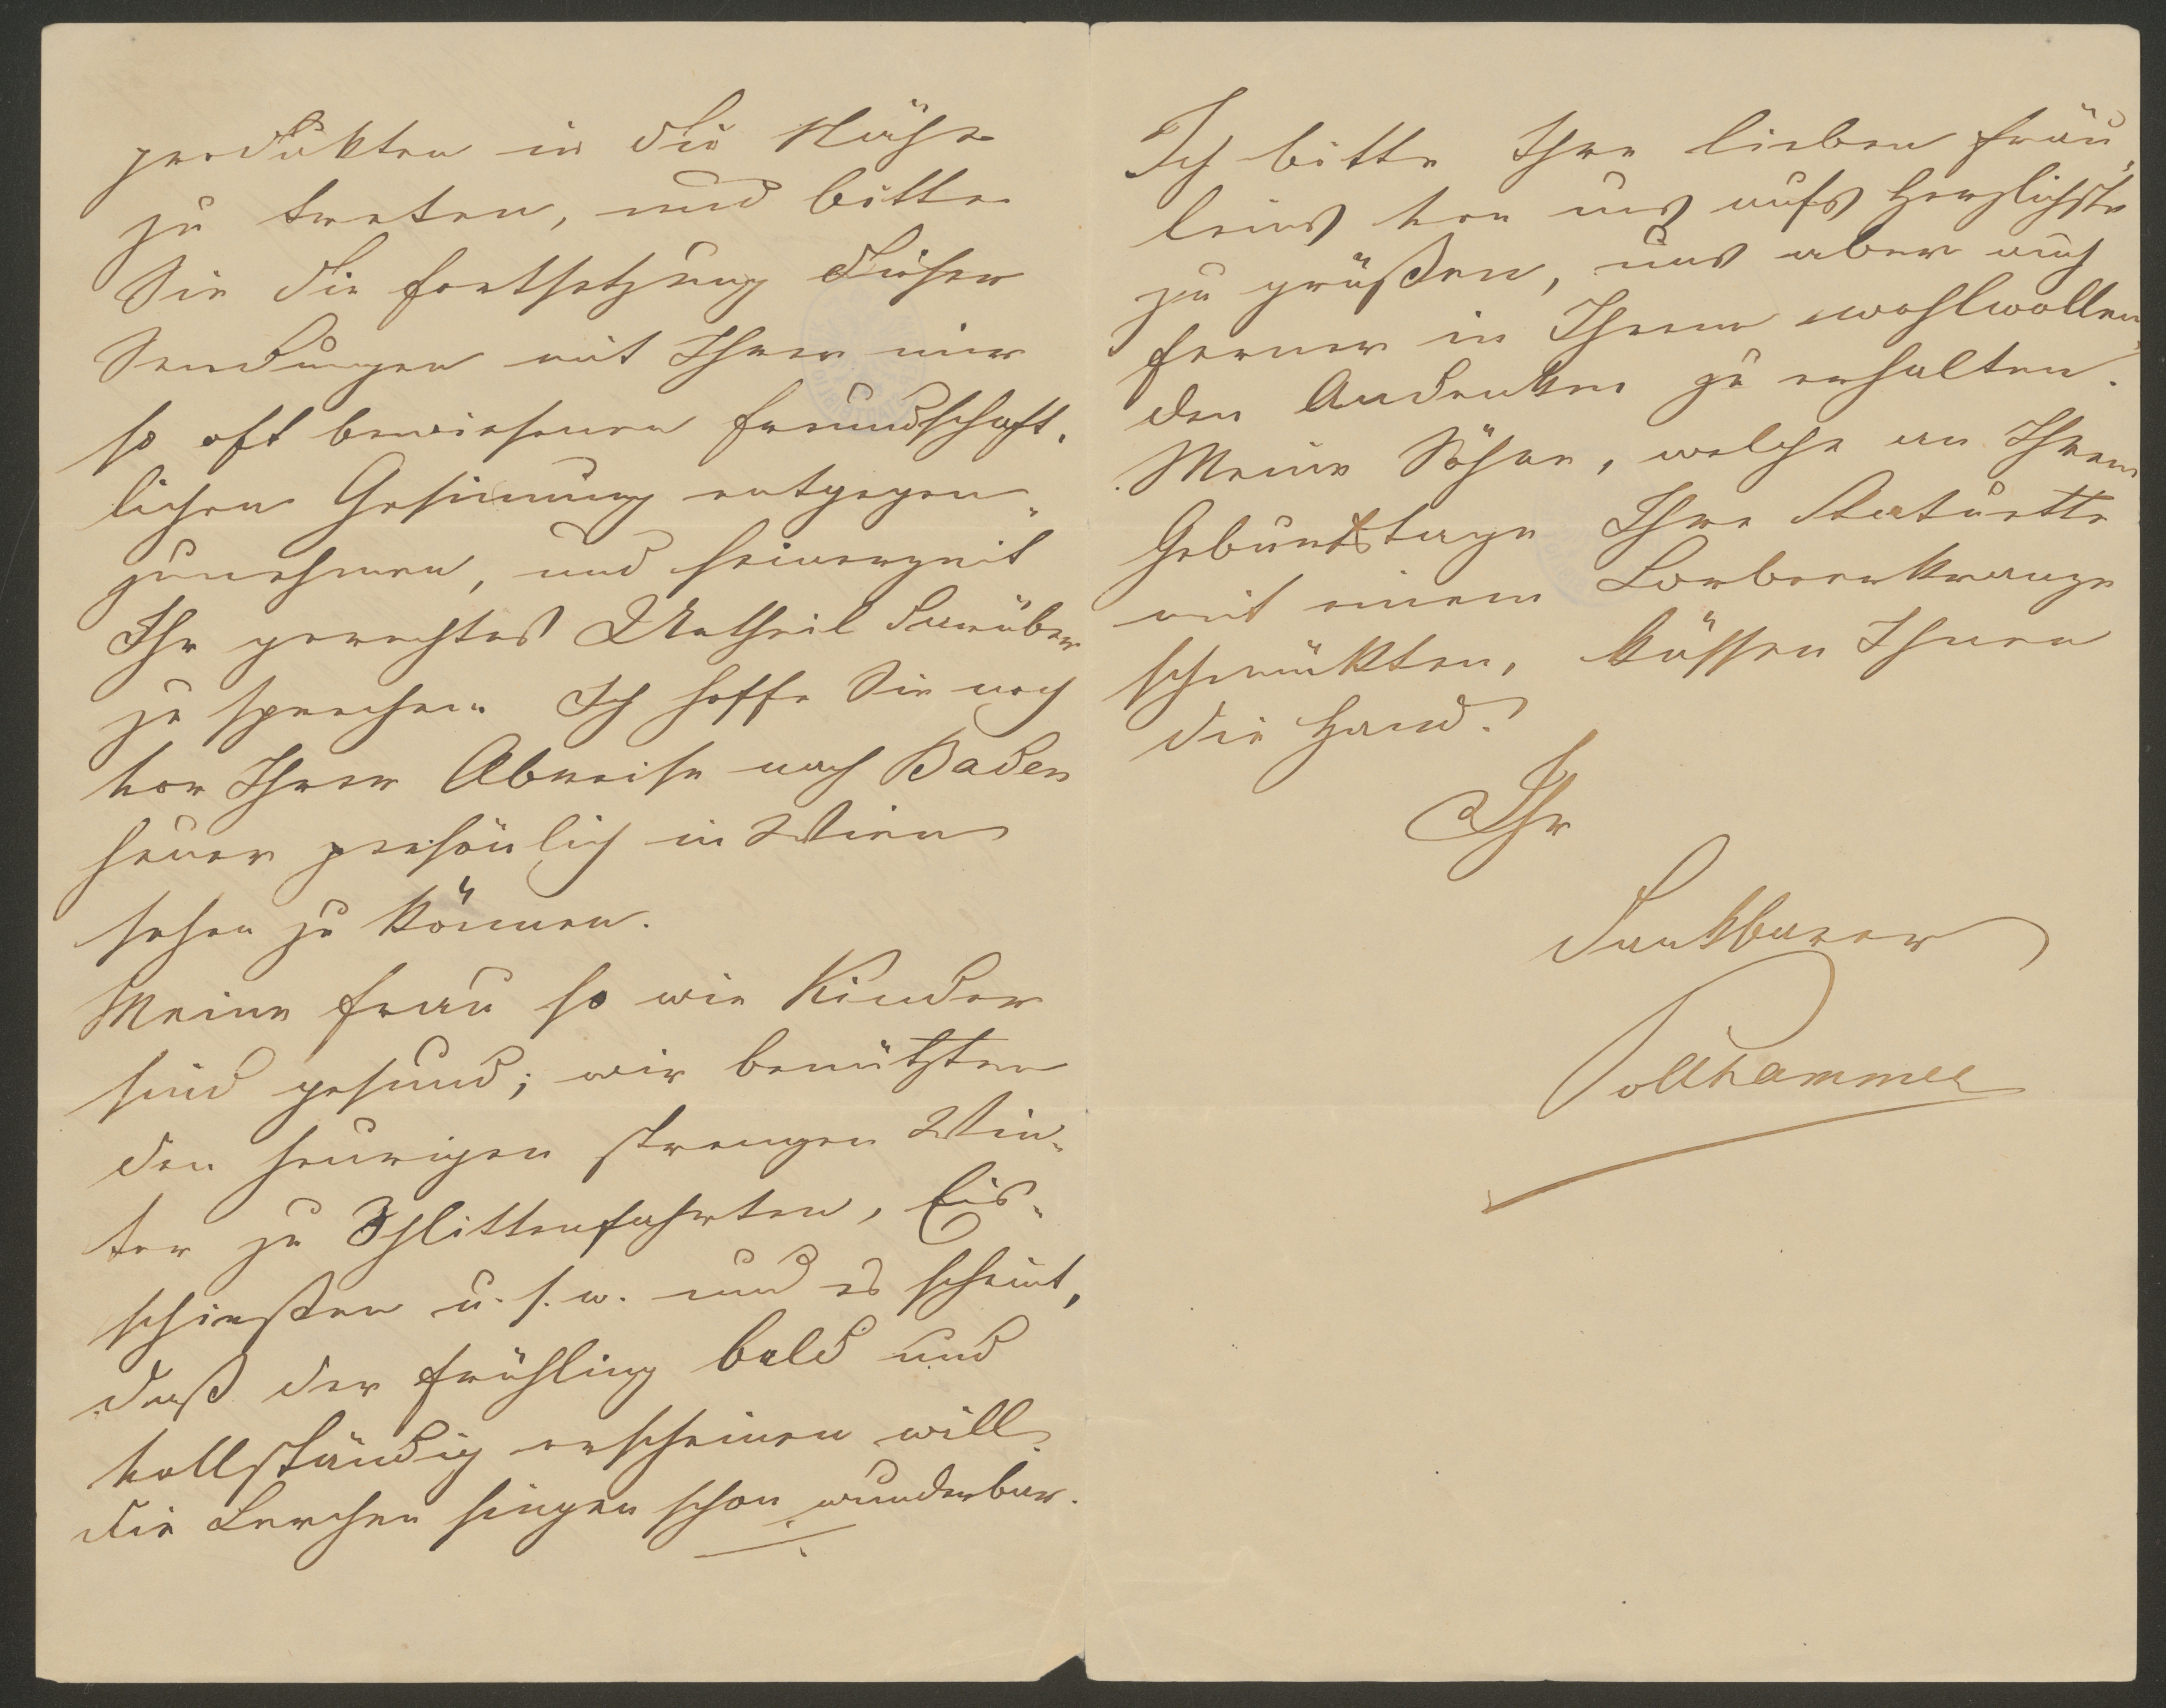 produkten in die Nähe
zu treten, und bitte
Sie die Fortsetzung dieser
Sendungen mit Ihrer mir
so oft bewiesenen freundschaft-
lichen Gesinnung entgegen-
zunehmen, und seinerzeit
Ihr gerechtes Urtheil darüber
zu sprechen. Ich hoffe Sie noch
vor Ihrer Abreise nach Baden
heuer persönlich in Wien
sehen zu können.
Meine Frau so wie Kinder
sind gesund; wir benützten
den heurigen strengen Win-
ter zu Schlittenfahrten, Eis-
schießen u. s. w. und es scheint,
daß der Frühling bald und
vollständig erscheinen will.
die Lerchen singen schon wunderbar.
Ich bitte Ihre lieben Fräu-
leins von uns aufs herzlichste
zu grüßen, uns aber auch
ferner in Ihrem wohlwollen-
den Andenken zu erhalten.
Meine Söhne, welche an Ihrem
Geburtstage Ihre Statuette
mit einem Lorbeerkranze
schmückten, küssen Ihnen
die Hand.
Ihr
dankbarer
Pollhammer